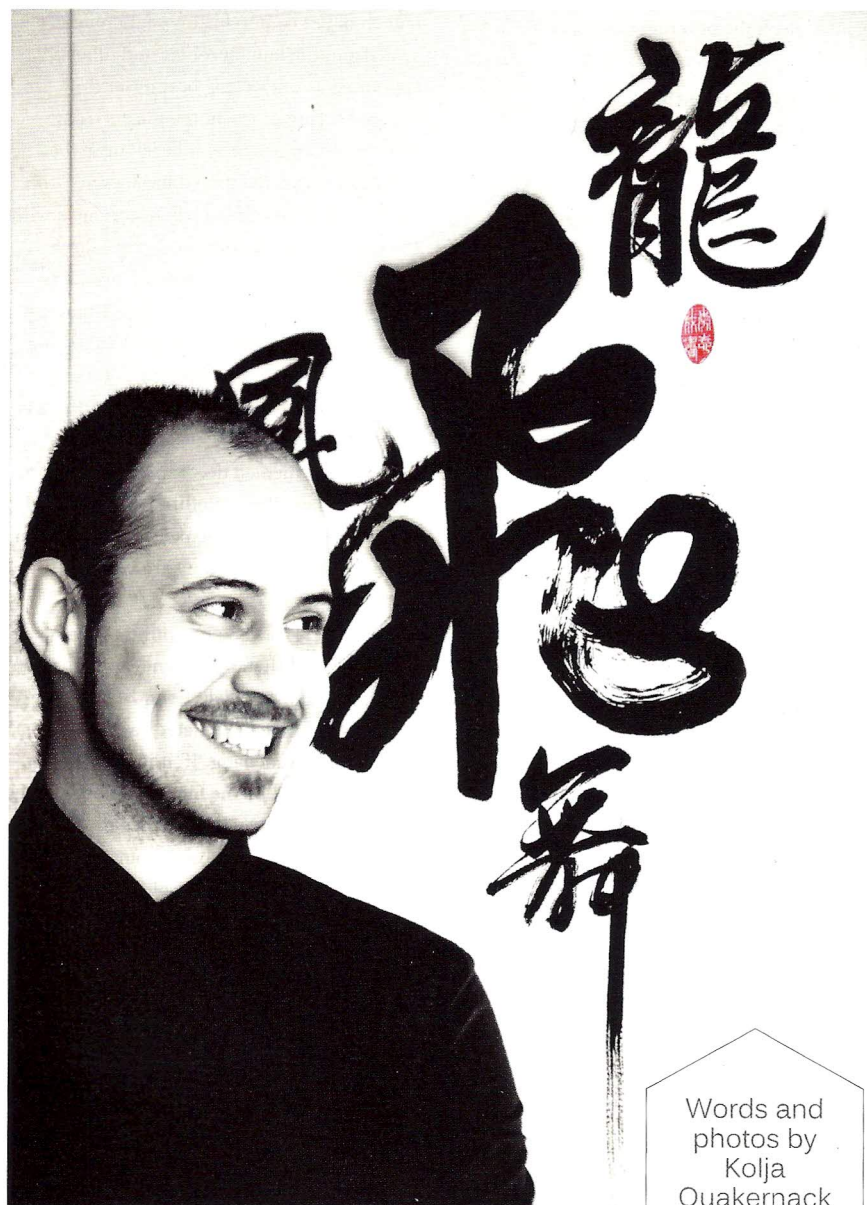 龍
飛
鳳
舞
Words and
photos by
Kolja
Quakernack